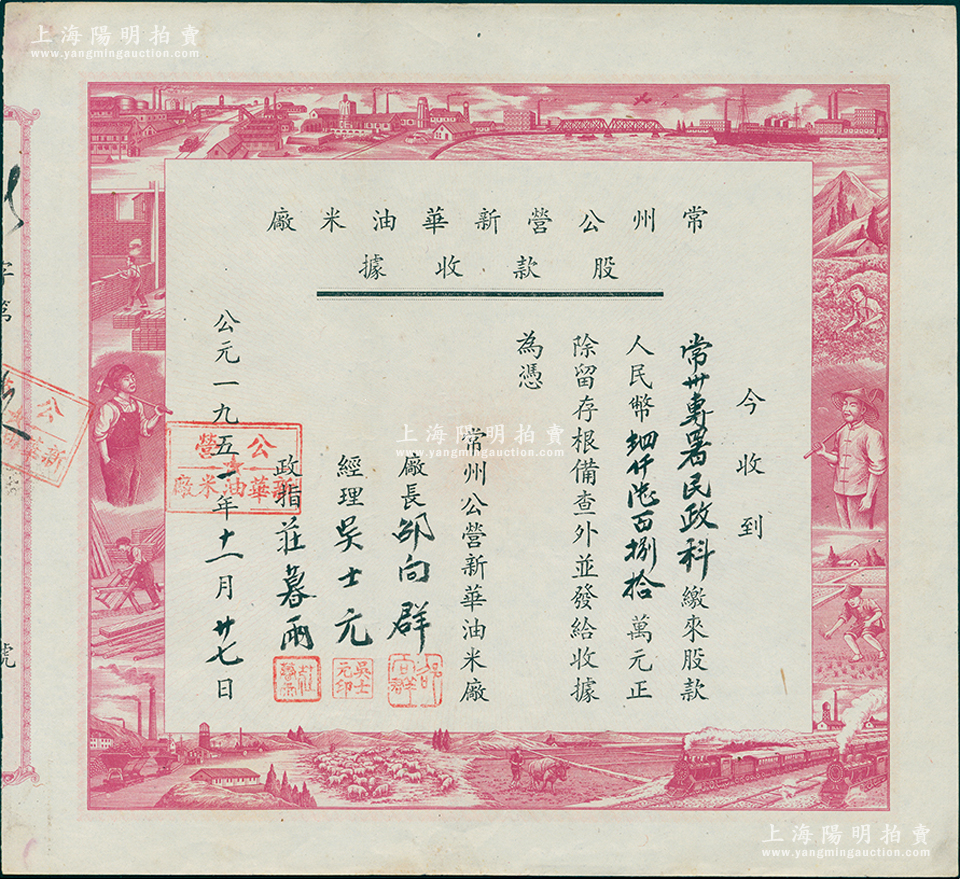 上海陽明拍賣
www.yangmingauction.com
常州公營新華油米廠
股款收據
今收到
常州專署民政科繳來股款
人民幣肆仟陸百捌拾萬元正
除留存根備查外並發給收據
為憑
常州公營新華油米廠
廠長邵向群
經理吳士元
政指莊暮雨
公元一九五一年十一月廿七日
公營
新華油米廠
吳士元印
字第
號
上海陽明拍賣
www.yangmingauction.com
上海陽明拍賣
www.yangmingauction.com